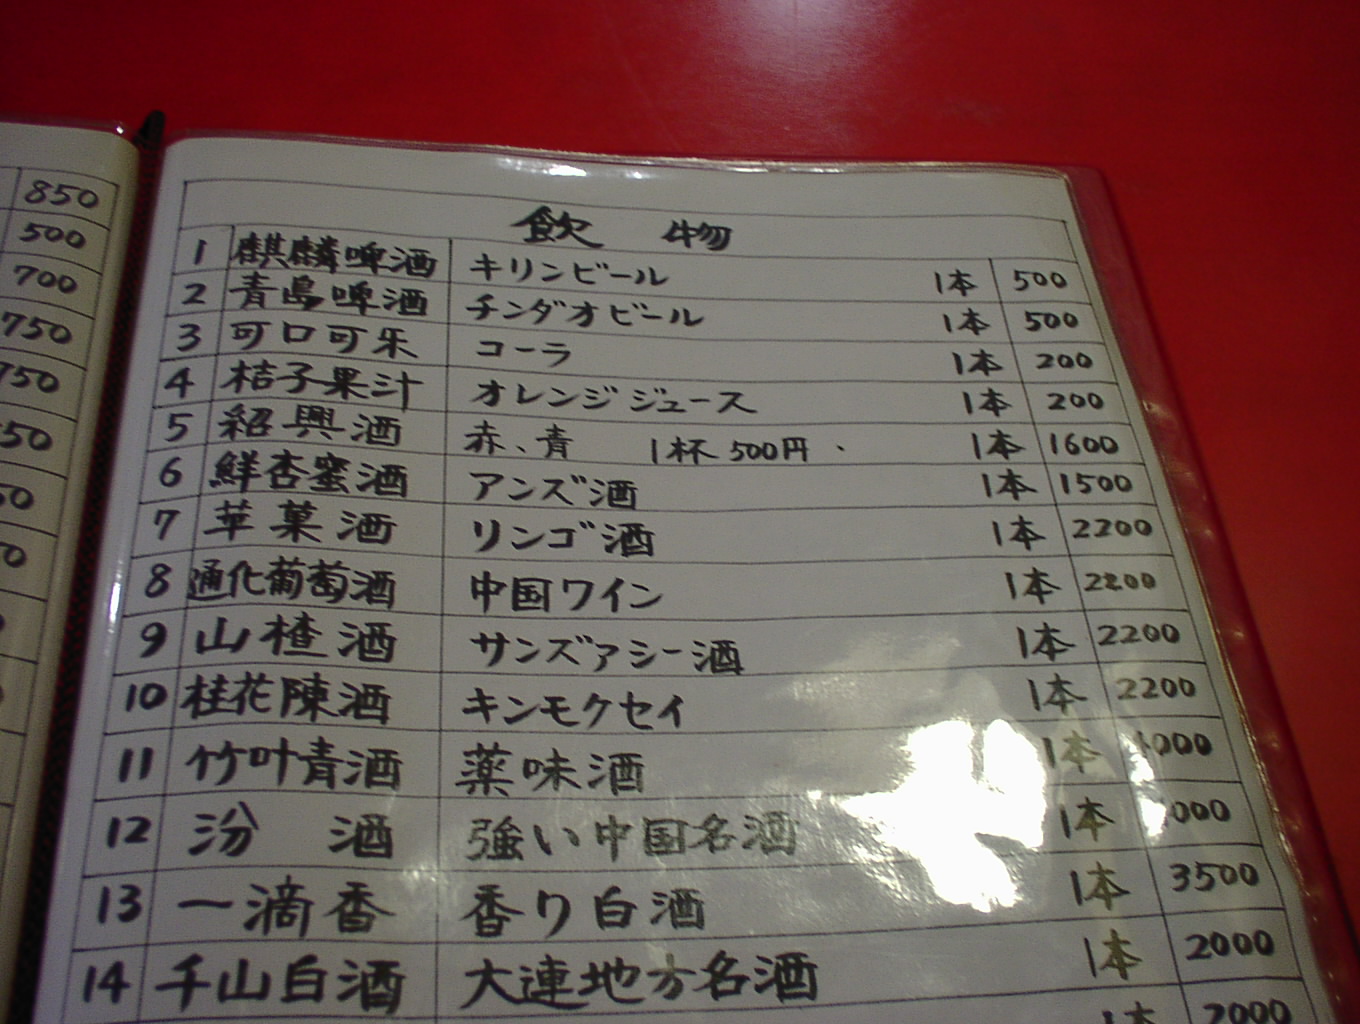 850
500
700
750
飲 物
1 麒麟啤酒 キリンビール 1本 500
2 青島啤酒 チンダオビール 1本 500
3 可口可乐 コーラ 1本 200
4 桔子果汁 オレンジジュース 1本 200
5 紹興酒 赤、青 1杯 500円 1本 1600
6 鮮杏蜜酒 アンズ酒 1本 1500
7 苹菓酒 リンゴ酒 1本 2200
8 通化葡萄酒 中国ワイン 1本 2200
9 山楂酒 サンズアシー酒 1本 2200
10 桂花陳酒 キンモクセイ 1本 2200
11 竹叶青酒 薬味酒 1本
12 汾 酒 強い中国名酒 1本
13 一滴香 香り白酒 1本 3500
14 千山白酒 大連地方名酒 1本 2000
1本 2000